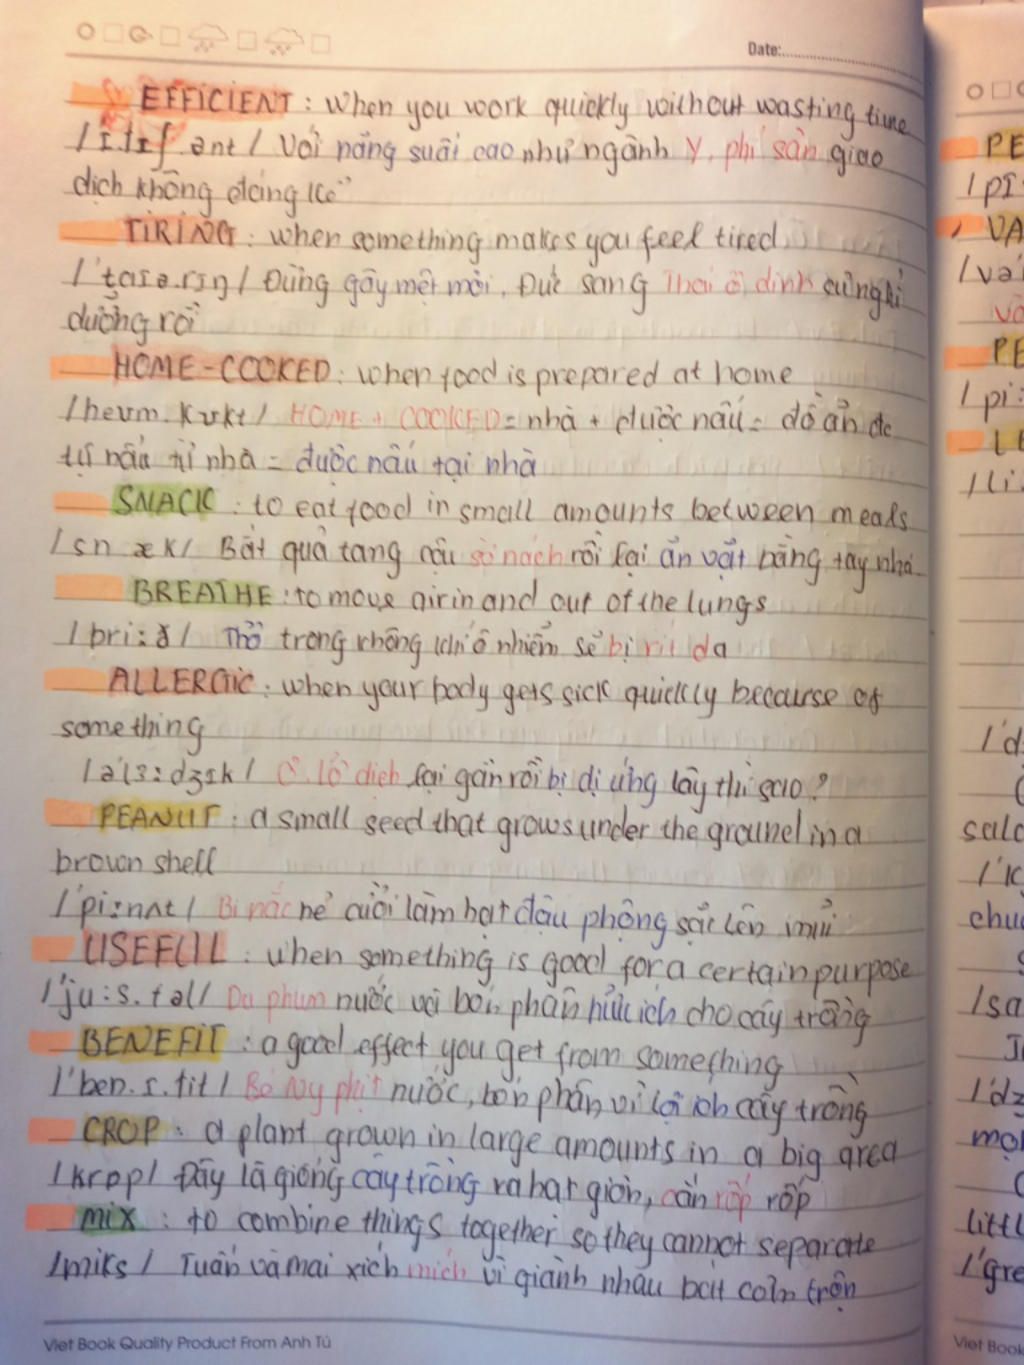 Date:
EFFICIENT : when you work quickly without wasting time
/ɪˈfɪʃ.ənt/ Với năng suất cao như ngành Y, phí sàn giao
dịch không đáng kể
TIRING : when something makes you feel tired
/ˈtaɪə.rɪŋ/ Đừng gây mệt mỏi, Đức sang Thái ổ dịnh
dưỡng rồi
HOME-COOKED : when food is prepared at home
/həʊm.kʊkt/ HOME + COOKED = nhà + được nấu = đồ ăn đc
tự nấu từ nhà = được nấu tại nhà
SNACK : to eat food in small amounts between meals
/snæk/ Bắt quả tang cậu sờ nách rồi lại ăn vặt bằng tay nhá
BREATHE : to move air in and out of the lungs
/bri:ð/ Thở trong không khí ô nhiễm sẽ bị rít da
ALLERGIC : when your body gets sick quickly because of
something
/əˈlɜ:dʒɪk/ Ở lồ dịch lại gần rồi bị dị ứng lây thì sao?
PEANUT : a small seed that grows under the ground in a
brown shell
/ˈpi:nʌt/ Bi nấc nẻ cười làm hạt đậu phộng sặc lên mũi
USEFUL : when something is good for a certain purpose
/ˈju:s.fəl/ Du phun nước và bón phân hữu ích cho cây trồng
BENEFIT : a good effect you get from something
/ˈben.ɪ.fit/ Bé Ny phịt nước, bón phân vì lợi ích cây trồng
CROP : a plant grown in large amounts in a big area
/krɒp/ Đây là giống cây trồng ra hạt giòn, cắn rốp rốp
MIX : to combine things together so they cannot separate
/miks/ Tuấn và mai xích mích vì giành nhau bát cơm trộn
Viet Book Quality Product From Anh Tú
PE
VA
PE
LE
salc
chu
/sa
mọi
littl
Viet Book